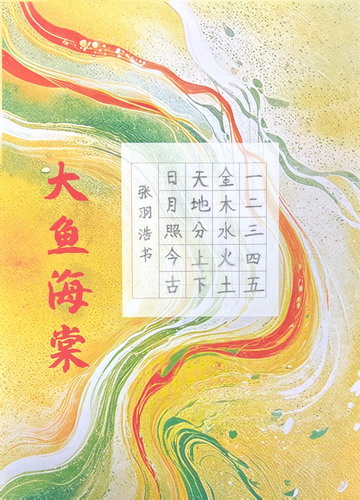 大鱼海棠
一二三四五
金木水火土
天地分上下
日月照今古
张羽浩书